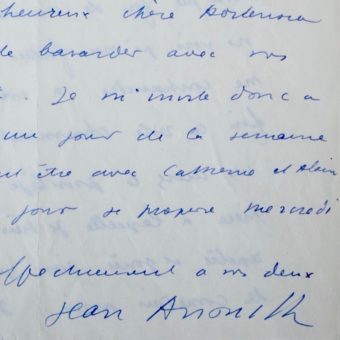 heureux chère
de bavarder avec vos
. Je m'invite donc a
un jour de la semaine
être avec Catherine et Alain
jour je propose mercredi
ffectueusement a vos deux
Jean Anouilh